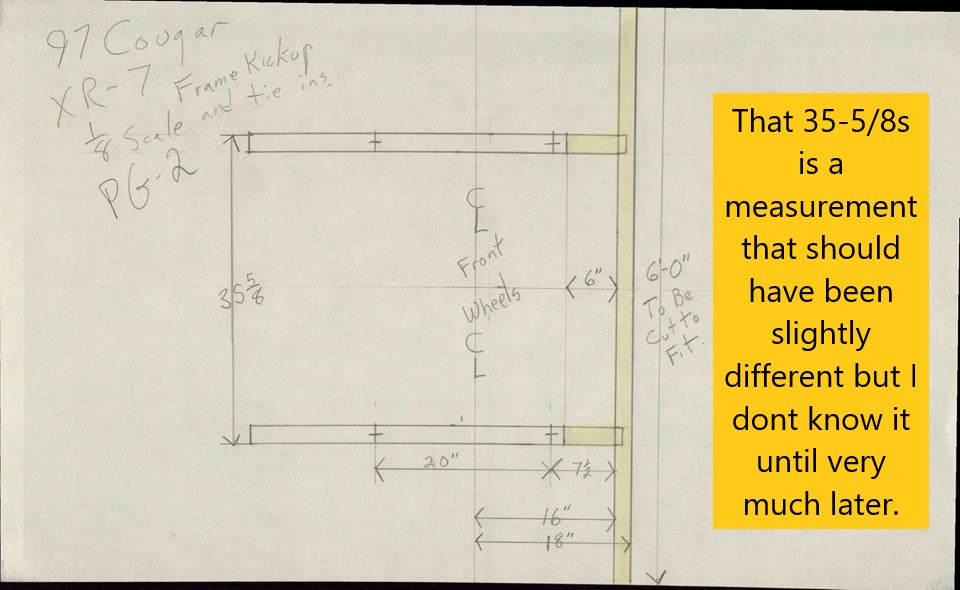 97 Cougar
XR-7 Frame Kickup
1/8 Scale and tie ins
PG-2
35 5/8
C
L
Front
Wheels
C
L
6"
6'-0"
To Be
Cut to
Fit.
20"
7 1/2
16"
18"
That 35-5/8s
is a
measurement
that should
have been
slightly
different but I
dont know it
until very
much later.